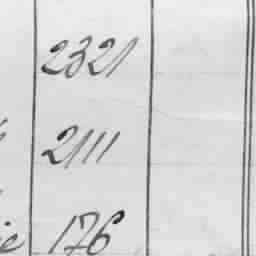 2321
2111
176